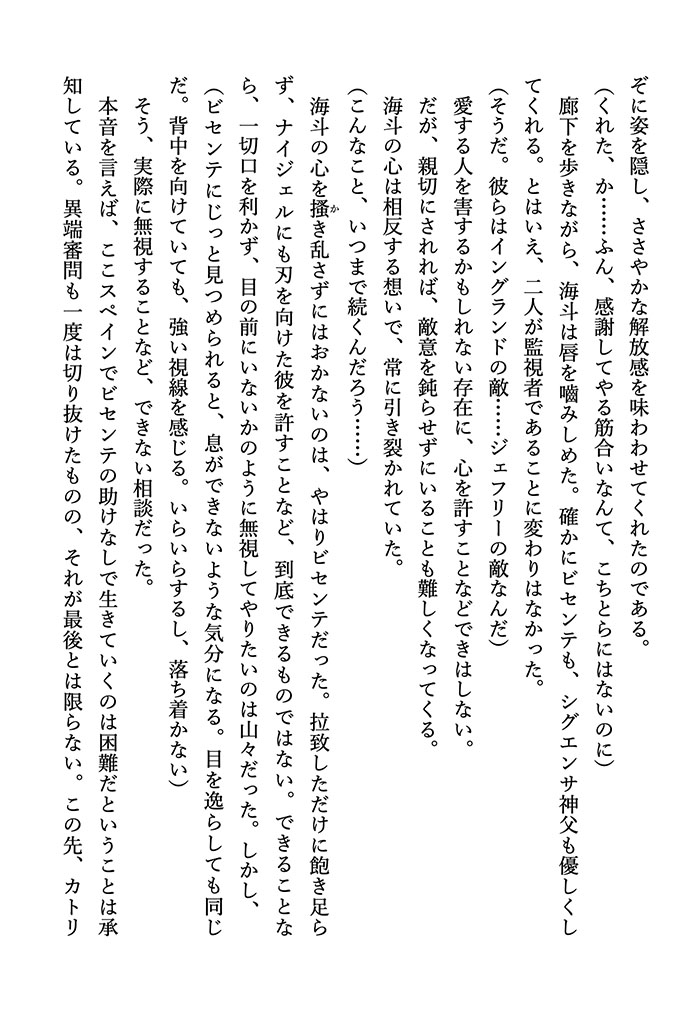 ぞに姿を隠し、ささやかな解放感を味わわせてくれたのである。
(くれた、か……ふん、感謝してやる筋合いなんて、こちとらにはないのに)
廊下を歩きながら、海斗は唇を嚙みしめた。確かにビセンテも、シグエンサ神父も優しくし
てくれる。とはいえ、二人が監視者であることに変わりはなかった。
(そうだ。彼らはイングランドの敵……ジェフリーの敵なんだ)
愛する人を害するかもしれない存在に、心を許すことなどできはしない。
だが、親切にされれば、敵意を鈍らせずにいることも難しくなってくる。
海斗の心は相反する想いで、常に引き裂かれていた。
(こんなこと、いつまで続くんだろう……)
海斗の心を搔き乱さずにはおかないのは、やはりビセンテだった。拉致しただけに飽き足ら
ず、ナイジェルにも刃を向けた彼を許すことなど、到底できるものではない。できることな
ら、一切口を利かず、目の前にいないかのように無視してやりたいのは山々だった。しかし、
(ビセンテにじっと見つめられると、息ができないような気分になる。目を逸らしても同じ
だ。背中を向けていても、強い視線を感じる。いらいらするし、落ち着かない)
そう、実際に無視することなど、できない相談だった。
本音を言えば、ここスペインでビセンテの助けなしで生きていくのは困難だということは承
知している。異端審問も一度は切り抜けたものの、それが最後とは限らない。この先、カトリ